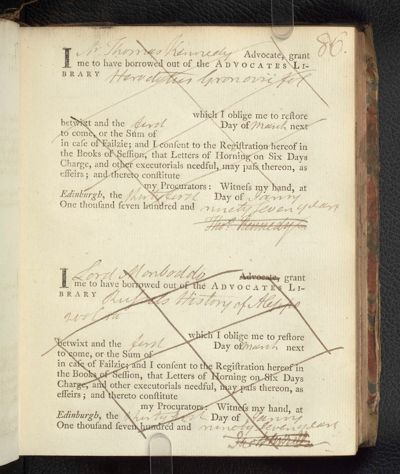 86.
I Mr. Thomas Kennedy Advocate, grant
me to have borrowed out of the ADVOCATES LI-
BRARY Herodotus Gronovii fol
which I oblige me to reſtore
betwixt and the first Day of March next
to come, or the Sum of
in caſe of Failzie; and I conſent to the Regiſtration hereof in
the Books of Seſſion, that Letters of Horning on Six Days
Charge, and other executorials needful, may paſs thereon, as
effeirs; and thereto conſtitute
my Procurators: Witneſs my hand, at
Edinburgh, the thirtieth Day of Janry
One thouſand ſeven hundred and ninety seven years
Tho: Kennedy
I Lord Monboddo Advocate, grant
me to have borrowed out of the ADVOCATES LI-
BRARY Russels History of Aleppo
2 vols
which I oblige me to reſtore
betwixt and the first Day of March next
to come, or the Sum of
in caſe of Failzie; and I conſent to the Regiſtration hereof in
the Books of Seſſion, that Letters of Horning on Six Days
Charge, and other executorials needful, may paſs thereon, as
effeirs; and thereto conſtitute
my Procurators: Witneſs my hand, at
Edinburgh, the thirty first Day of Janry
One thouſand ſeven hundred and ninety seven years